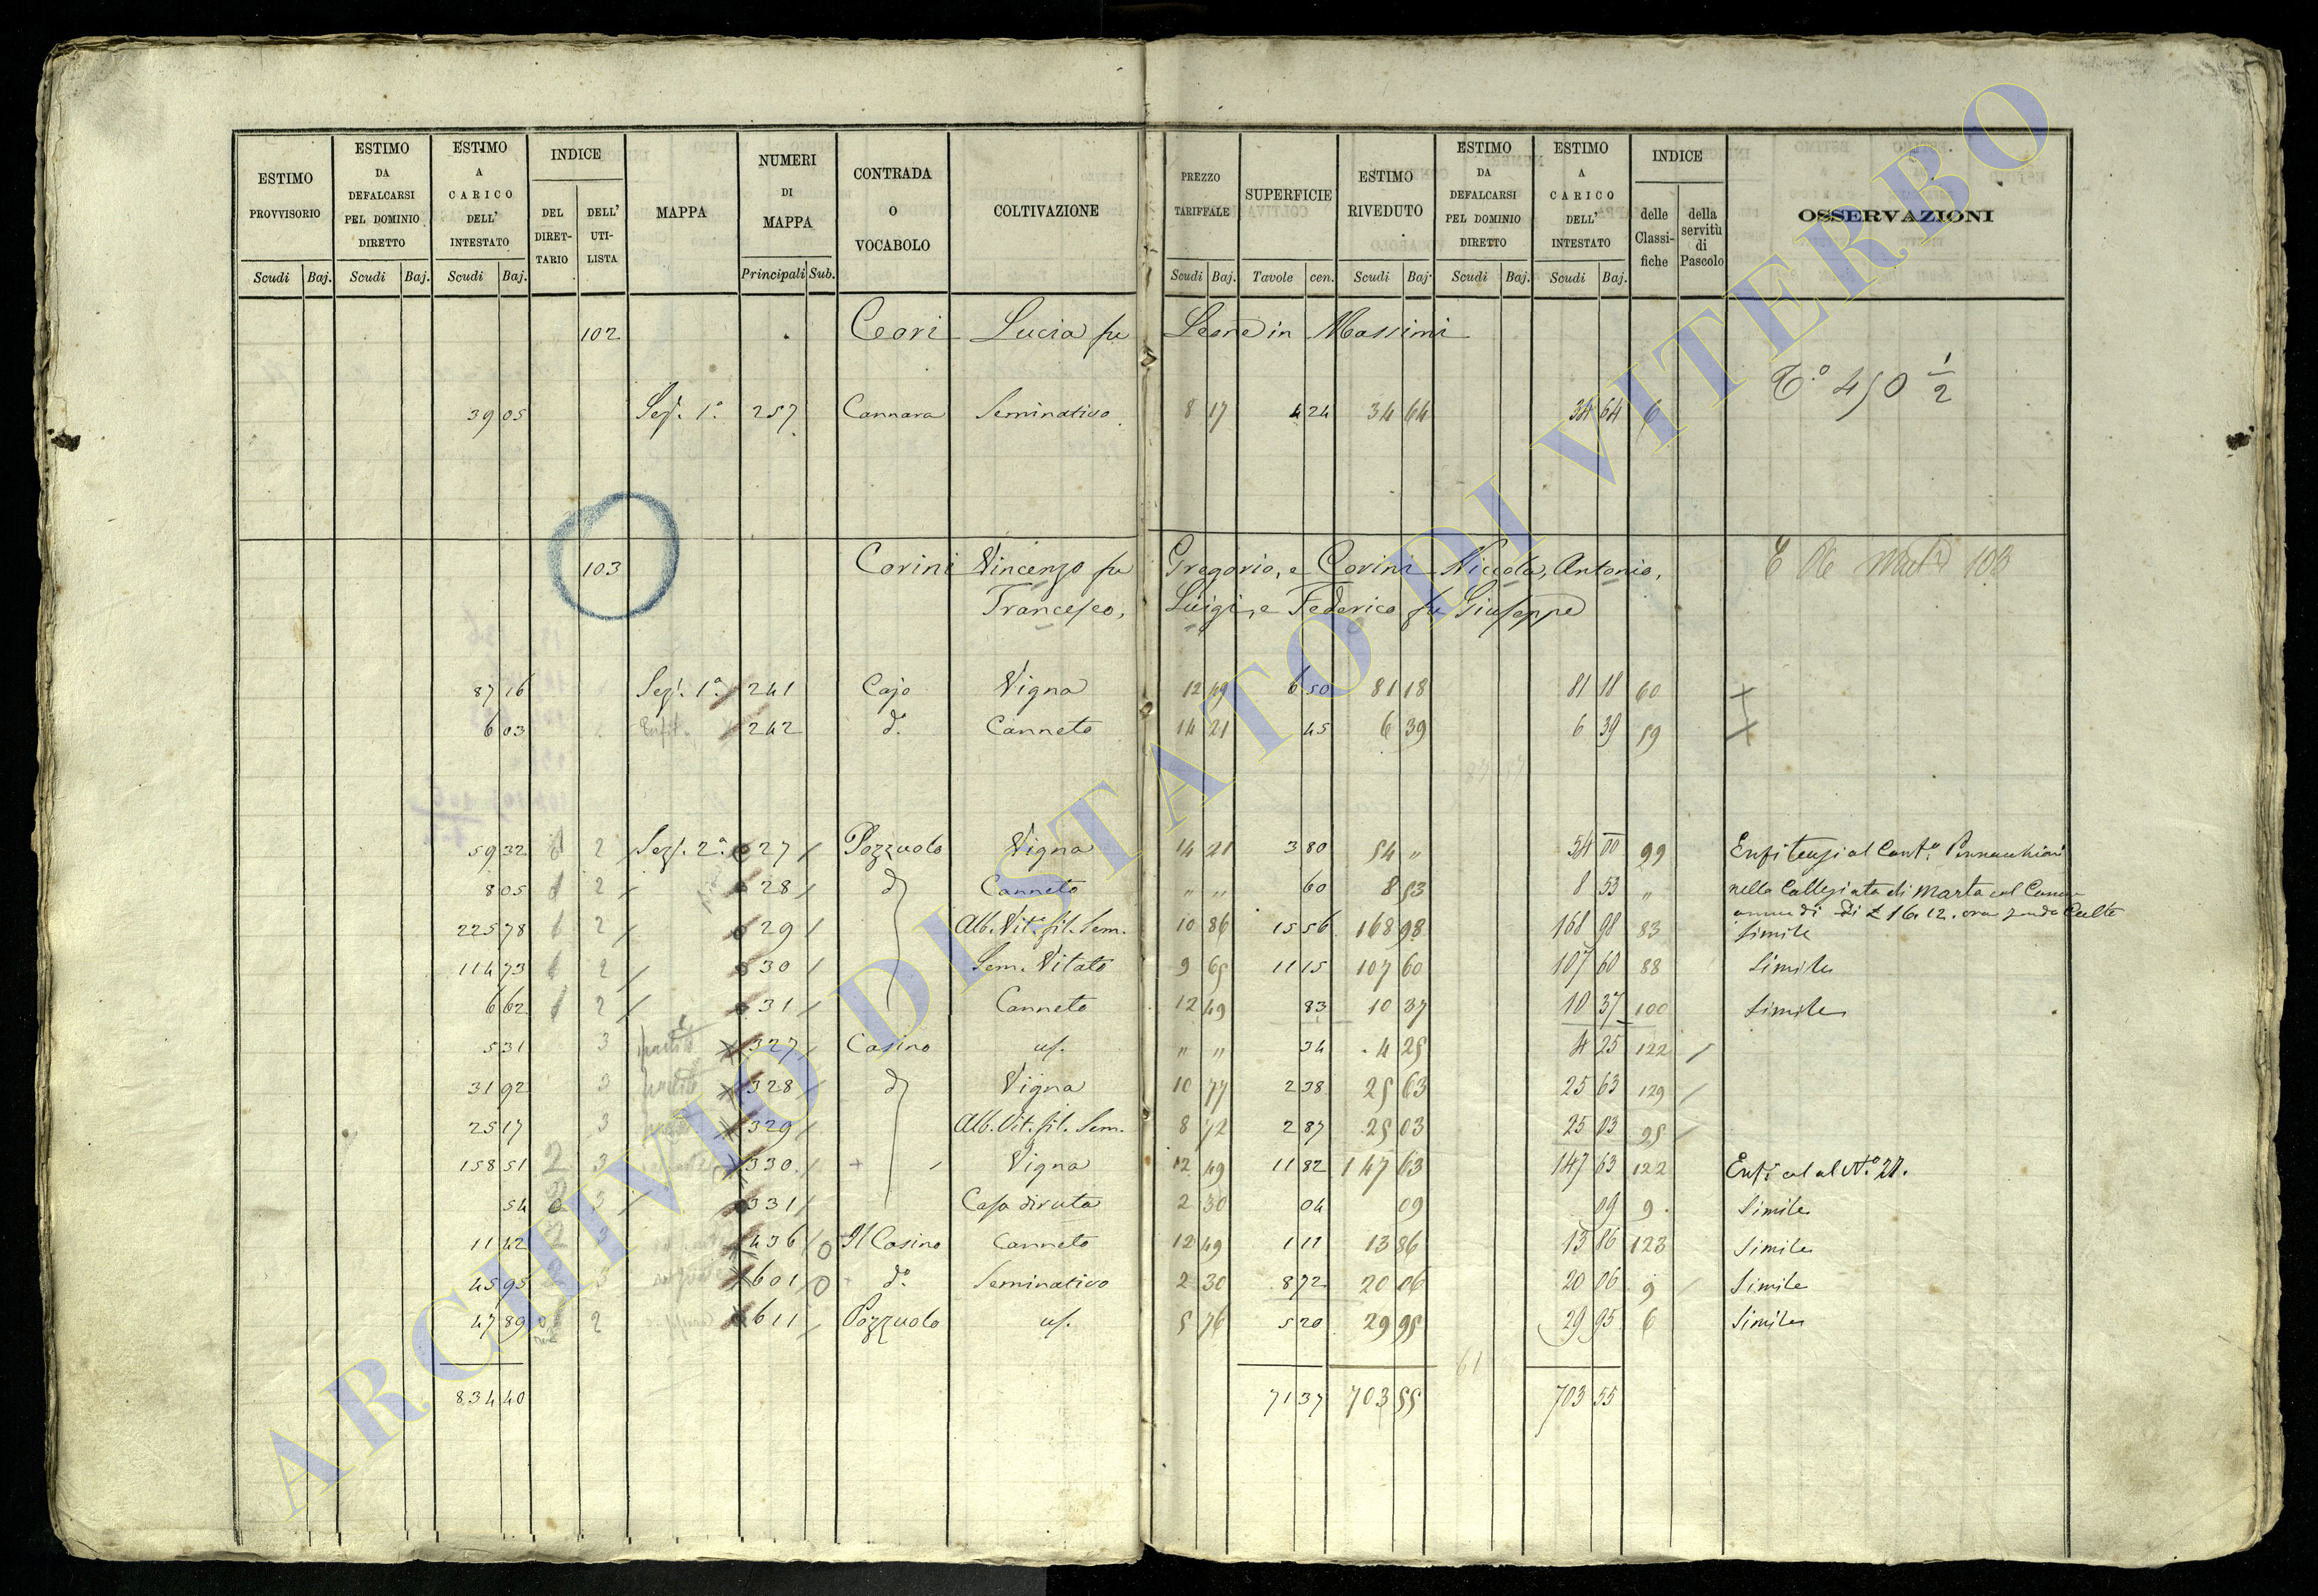 ESTIMO PROVVISORIO Scudi Baj. ESTIMO DA DEFALCARSI PEL DOMINIO DIRETTO Scudi Baj. ESTIMO A CARICO DELL' INTESTATO Scudi Baj. INDICE DEL DIRETTARIO DELL' UTILISTA MAPPA NUMERI DI MAPPA Principali Sub. CONTRADA O VOCABOLO COLTIVAZIONE PREZZO TARIFFALE Scudi Baj. SUPERFICIE Tavole cen. ESTIMO RIVEDUTO Scudi Baj. ESTIMO DA DEFALCARSI PEL DOMINIO DIRETTO Scudi Baj. ESTIMO A CARICO DELL' INTESTATO Scudi Baj. INDICE delle Classifiche della servitù di Pascolo OSSERVAZIONI
102 Ceori Lucia fu Leone in Massimi
T.° 450 1/2
39 05 Sez. 1ª 257 Cannara Seminativo 8 17 4 24 34 64 34 64 6
103 Corini Vincenzo fu Gregorio, e Corini Niccola, Antonio, 103
Francesco, Luigi, e Federico fu Giuseppe
87 16 Sez. 1ª 241 Cajo Vigna 12 49 6 50 81 18 81 18 60
6 03 242 d.° Canneto 14 21 45 6 39 6 39 59
59 32 2 Sez. 2ª 27 Pozzuolo Vigna 14 21 3 80 54 " 54 00 99 Enfiteusi al
8 05 2 28 d.° Canneto " " 60 8 53 8 53 " nella Collegiata di Marta col
225 78 2 29 Alb. Vit. fil. Sem. 10 86 15 56 168 98 168 98 83 Simile
114 73 2 30 Sem. Vitato 9 65 11 15 107 60 107 60 88 Simile
6 62 2 31 Canneto 12 49 83 10 37 10 37 100 Simile
5 31 3 327 Casino us. " " 34 4 25 4 25 122
31 92 3 328 d.° Vigna 10 77 2 38 25 63 25 63 129
25 17 3 329 Alb. Vit. fil. Sem. 8 72 2 87 25 03 25 03 95
158 51 2 3 330 Vigna 12 49 11 82 147 63 147 63 122 Enfi al N.° 27.
54 3 331 Casa diruta 2 30 04 09 09 9 Simile
11 42 2 3 436 Il Casino Canneto 12 49 1 11 13 86 13 86 123 Simile
45 95 2 3 601 d.° Seminativo 2 30 8 72 20 06 20 06 9 Simile
47 89 2 611 Pozzuolo us. 5 76 5 20 29 95 29 95 6 Simile
61
834 40 71 37 703 55 703 55
ARCHIVIO DI STATO DI VITERBO